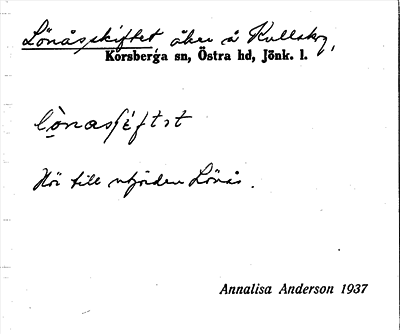 Lönåsskiftet åker å Kullskog,
Korsberga sn, Östra hd, Jönk. l.
Hör till utjorden Lönås.
Annalisa Anderson 1937